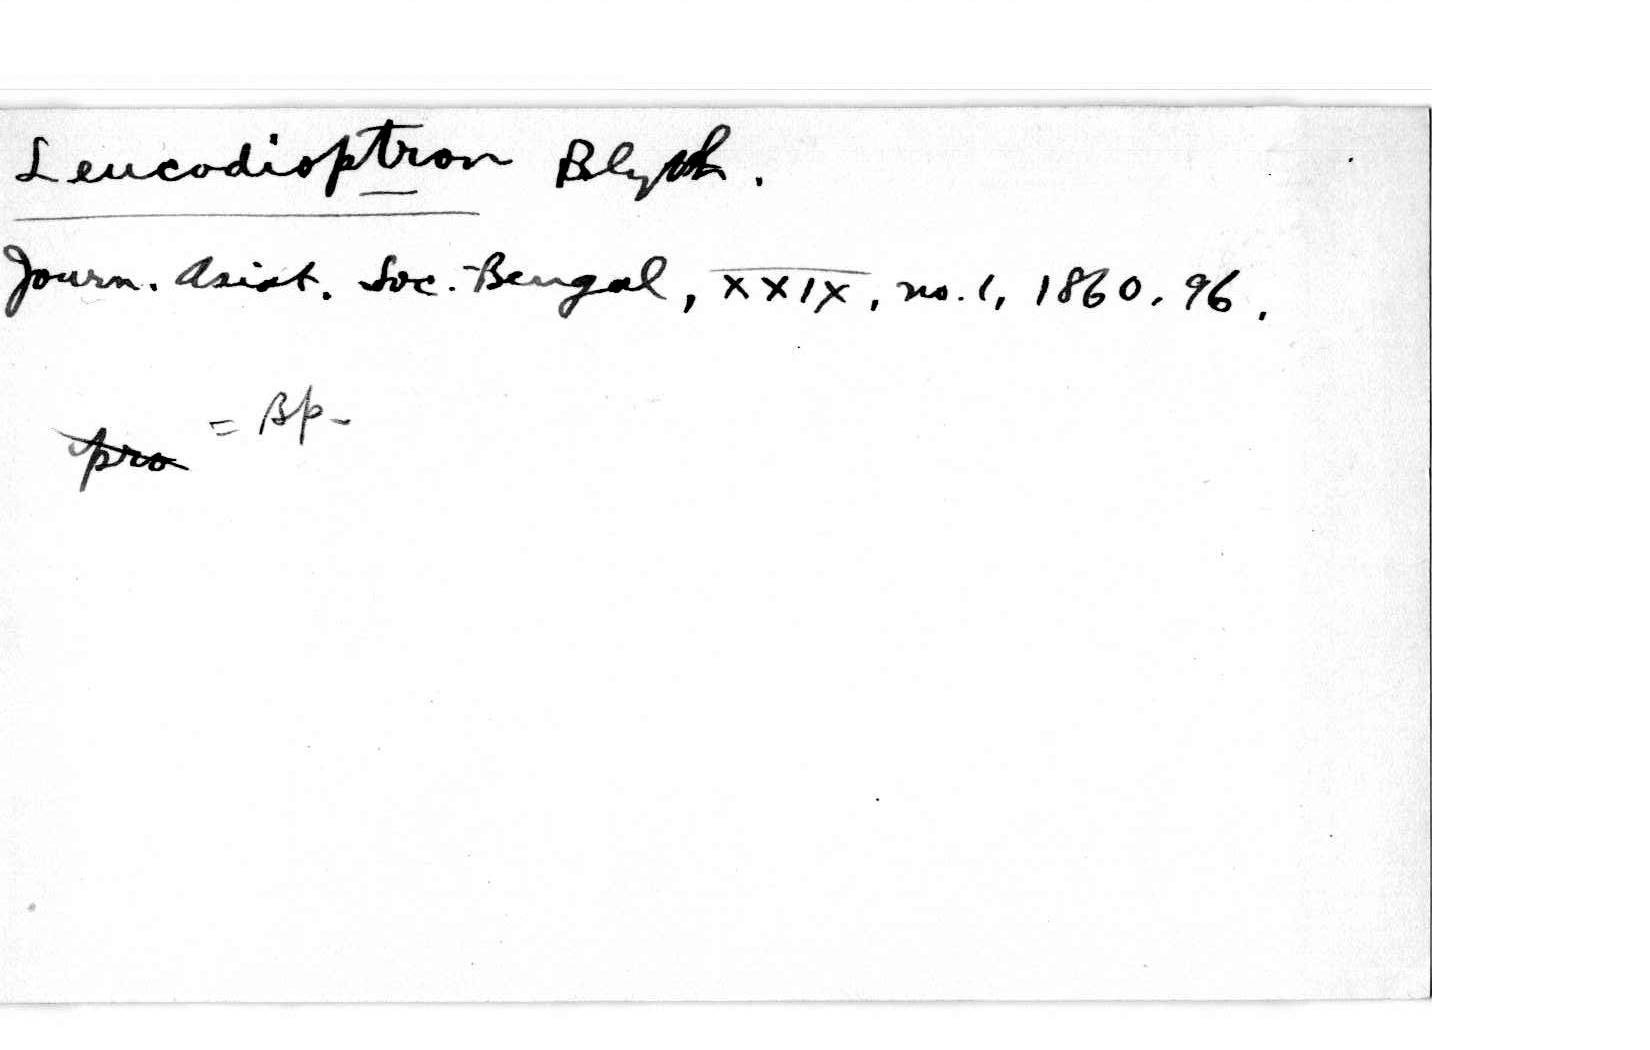 Leucodioptron Blyth.
Journ. Asiat. Soc. Bengal, XXIX, no. 1, 1860, 96.
= Bp-
pro